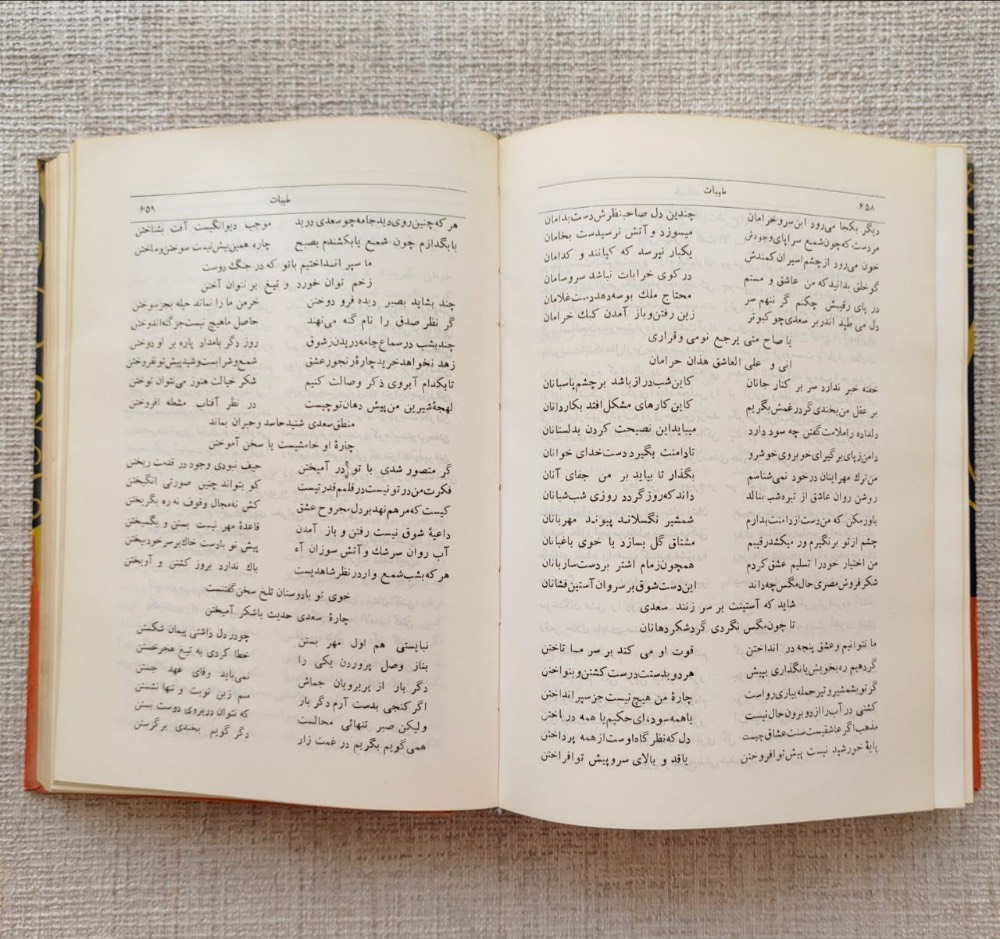 ۶۵۸ طیبات
دیگر بکجا می‌رود این سرو خرامان چندین دل صاحبنظرش دست بدامان
مردست که چون شمع سراپای وجودش میسوزد و آتش نرسیدست بخامان
خون می‌رود از چشم اسیران کمندش یکبار نپرسد که کیانند و کدامان
گو خلق بدانید که من عاشق و مستم در کوی خرابات نباشد سروسامان
در پای رقیبش چکنم گر ننهم سر محتاج ملک بوسه دهد دست غلامان
دل می طپد اندر بر سعدی چو کبوتر زین رفتن و باز آمدن کبک خرامان
یا صاح متی یرجع نومی و قراری
انی و علی العاشق هذان حرامان
خفته خبر ندارد سر بر کنار جانان کاین شب دراز باشد بر چشم پاسبانان
بر عقل من بخندی گر در غمش بگریم کاین کارهای مشکل افتد بکاردانان
دلداده را ملامت گفتن چه سود دارد میباید این نصیحت کردن بدلستانان
دامن ز پای برگیر ای خوبروی خوشرو تا دامنت بگیرد دست خدای خوانان
من ترک مهر اینان در خود نمی‌شناسم بگذار تا بیاید بر من جفای آنان
روشن روان عاشق از تیره شب ننالد داند که روز گردد روزی شب شبانان
باور مکن که من دست از دامنت بدارم شمشیر نگسلاند پیوند مهربانان
چشم از تو بر نگیرم ور میکشد رقیبم مشتاق گل بسازد با خوی باغبانان
من اختیار خود را تسلیم عشق کردم همچون زمام اشتر بر دست ساربانان
شکر فروش مصری حال مگس چه داند این دست شوق بر سر وان آستین فشانان
شاید که آستینت بر سر زنند سعدی
تا چون مگس نگردی گرد شکر دهانان
ما نتوانیم و عشق پنجه در انداختن قوت او می کند بر سر ما تاختن
گر دهیم ره بخویش یا نگذاری بپیش هر دو بدستت درست کشتن و بنواختن
گر تو بشمشیر و تیر حمله بیاری رواست چارهٔ من هیچ نیست جز سپر انداختن
کشتی در آب را از دو برون حال نیست یا همه سود ای حکیم یا همه در باختن
مذهب اگر عاشقیست سنت عشاق چیست دل که نظرگاه اوست از همه پرداختن
پایهٔ خورشید نیست پیش تو افروختن یا قد و بالای سرو پیش تو افراختن
طیبات ۶۵۹
هر که چنین روی دید جامه چو سعدی درید موجب دیوانگیست آفت بشناختن
یا بگدازم چون شمع یا بکشندم بصبح چاره همین بیش نیست سوختن و ساختن
ما سپر انداختیم با تو که در جنگ دوست
زخم توان خورد و تیغ بر نتوان آختن
چند بشاید بصبر دیده فرو دوختن خرمن ما را نماند حیله بجز سوختن
گر نظر صدق را نام گنه می‌نهند حاصل ما هیچ نیست جز گنه اندوختن
چند بشب در سماع جامه دریدن ز شوق روز دگر بامداد پاره بر او دوختن
زهد نخواهد خرید چارهٔ رنجور عشق شمع و شرابست و شید پیش تو نفروختن
تا بکدام آبروی ذکر وصالت کنیم شکر خیالت هنوز می نتوان توختن
لهجهٔ شیرین من پیش دهان تو چیست در نظر آفتاب مشعله افروختن
منطق سعدی شنید حاسد و حیران بماند
چارهٔ او خامشیست یا سخن آموختن
گر متصور شدی با تو در آمیختن حیف نبودی وجود در قدمت ریختن
فکرت من در تو نیست در قلم قدرتیست کو بتواند چنین صورتی انگیختن
کیست که مرهم نهد بر دل مجروح عشق کش نه مجال وقوف نه ره بگریختن
داعیهٔ شوق نیست رفتن و باز آمدن قاعدهٔ مهر نیست بستن و بگسیختن
آب روان سرشک و آتش سوزان آه پیش تو بادست خاک بر سر خود بیختن
هر که بشب شمع وار در نظر شاهدیست باک ندارد بروز کشتن و آویختن
خوی تو با دوستان تلخ سخن گفتنست
چارهٔ سعدی حدیث با شکر آمیختن
نبایستی هم اول مهر بستن چو در دل داشتی پیمان شکستن
بناز وصل پروردن یکی را خطا کردی به تیغ هجر خستن
دگر بار از پریرویان جماش نمی‌باید وفای عهد جستن
اگر کنجی بدست آرم دگر بار منم زین نوبت و تنها نشستن
ولیکن صبر تنهائی محالست که نتوان در بروی دوست بستن
همی گویم بگریم در غمت زار دگر گویم بخندی بر گرستن